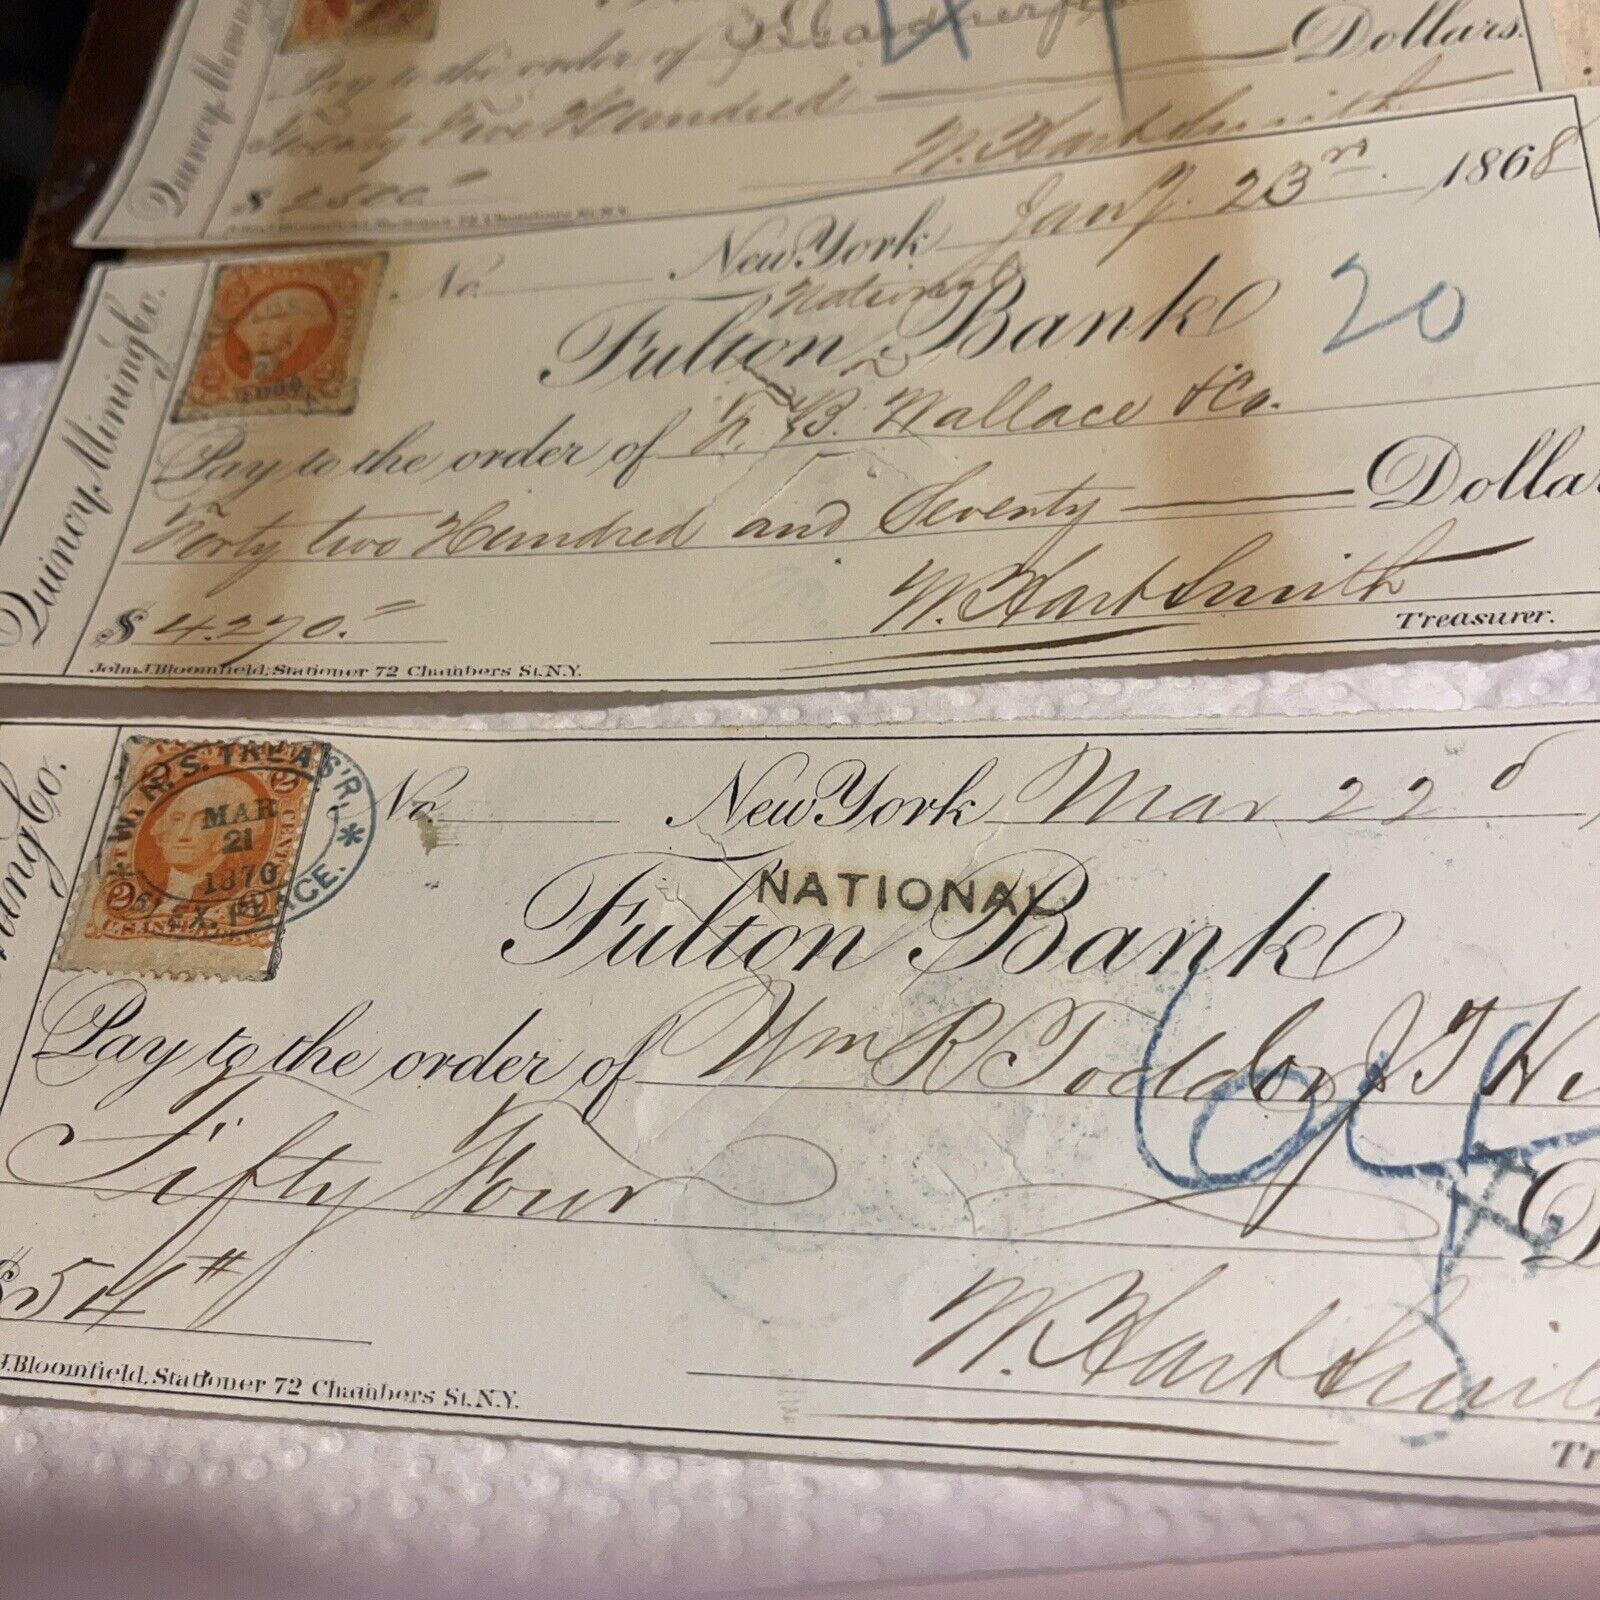 Quincy Mining
Pay to the order of J L Gardner
Dollars.
Twenty Five Hundred
$ 2500
W. Hart Smith
Quincy Mining Co.
No. New York Jany. 23rd. 1868
National
Fulton Bank
20
Pay to the order of B. Wallace & Co.
Forty two Hundred and Seventy Dolla
$ 4.270.=
W. Hart Smith
Treasurer.
John J. Bloomfield, Stationer 72 Chambers St. N.Y.
ning Co.
TREAS'R.
MAR
21
1870
PLACE.
2 CENT
No. New York Mar 22d
NATIONAL
Fulton Bank
Pay to the order of Wm R Todd or J T
Fifty Four
$54#
W. Hart Smit
J. Bloomfield, Stationer 72 Chambers St. N.Y.
Tr